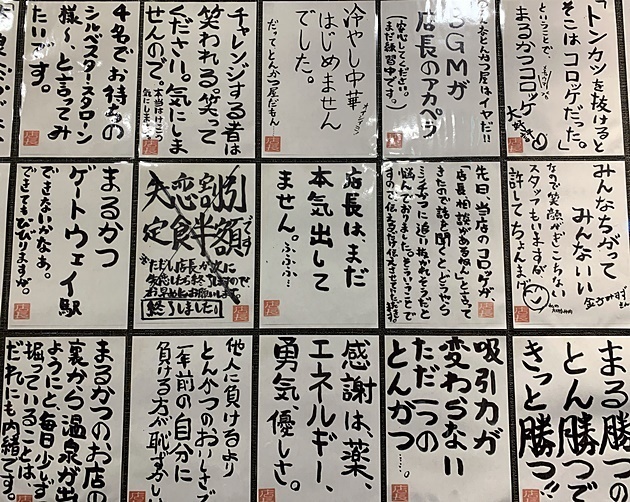 「トンカツを抜けると
そこはコロッケだった。」
ということで、
まるかつコロッケ
大好評
こんなとんかつ屋はイヤだ!!
BGMが
店長のアカペラ
(安心してください。
まだ練習中です。)
冷やし中華
はじめません
でした。
だってとんかつ屋だもん
チャレンジする者は
笑われる。笑って
ください。気にしま
せんので。
本当はけっこう
気にします
4名でお待ちの
シルベスタースタローン
様〜、と言ってみ
たいです。
みんなちがって
みんないい
金子みすゞ
なので笑顔がぎこちない
スタッフもいますが
許してちょんまげ
先日、当店のコロッケが
「店長、相談があるねん」と言って
きたので話を聞くと、どうやら
ミンチカツに追い抜かれそうだと
悩んでおりました。
店長はまだ
本気出して
ません。ふふふ…
失恋割引
定食半額です
終了しました!
まるかつ
ゲートウェイ駅
できないかなぁ。
できてもひびりますが。
まる勝つの
とん勝つで
きっと勝つ!!
吸引力が
変わらない
ただ一つの
とんかつ…。
感謝は薬、
エネルギー、
勇気、優しさ。
他人に負けるより
とんかつのおいしさで
一年前の自分に
負ける方が恥ずかし
まるかつのお店の
裏から温泉が出
ようにと、毎日少しず
掘っていることは、
だれにも内緒です。